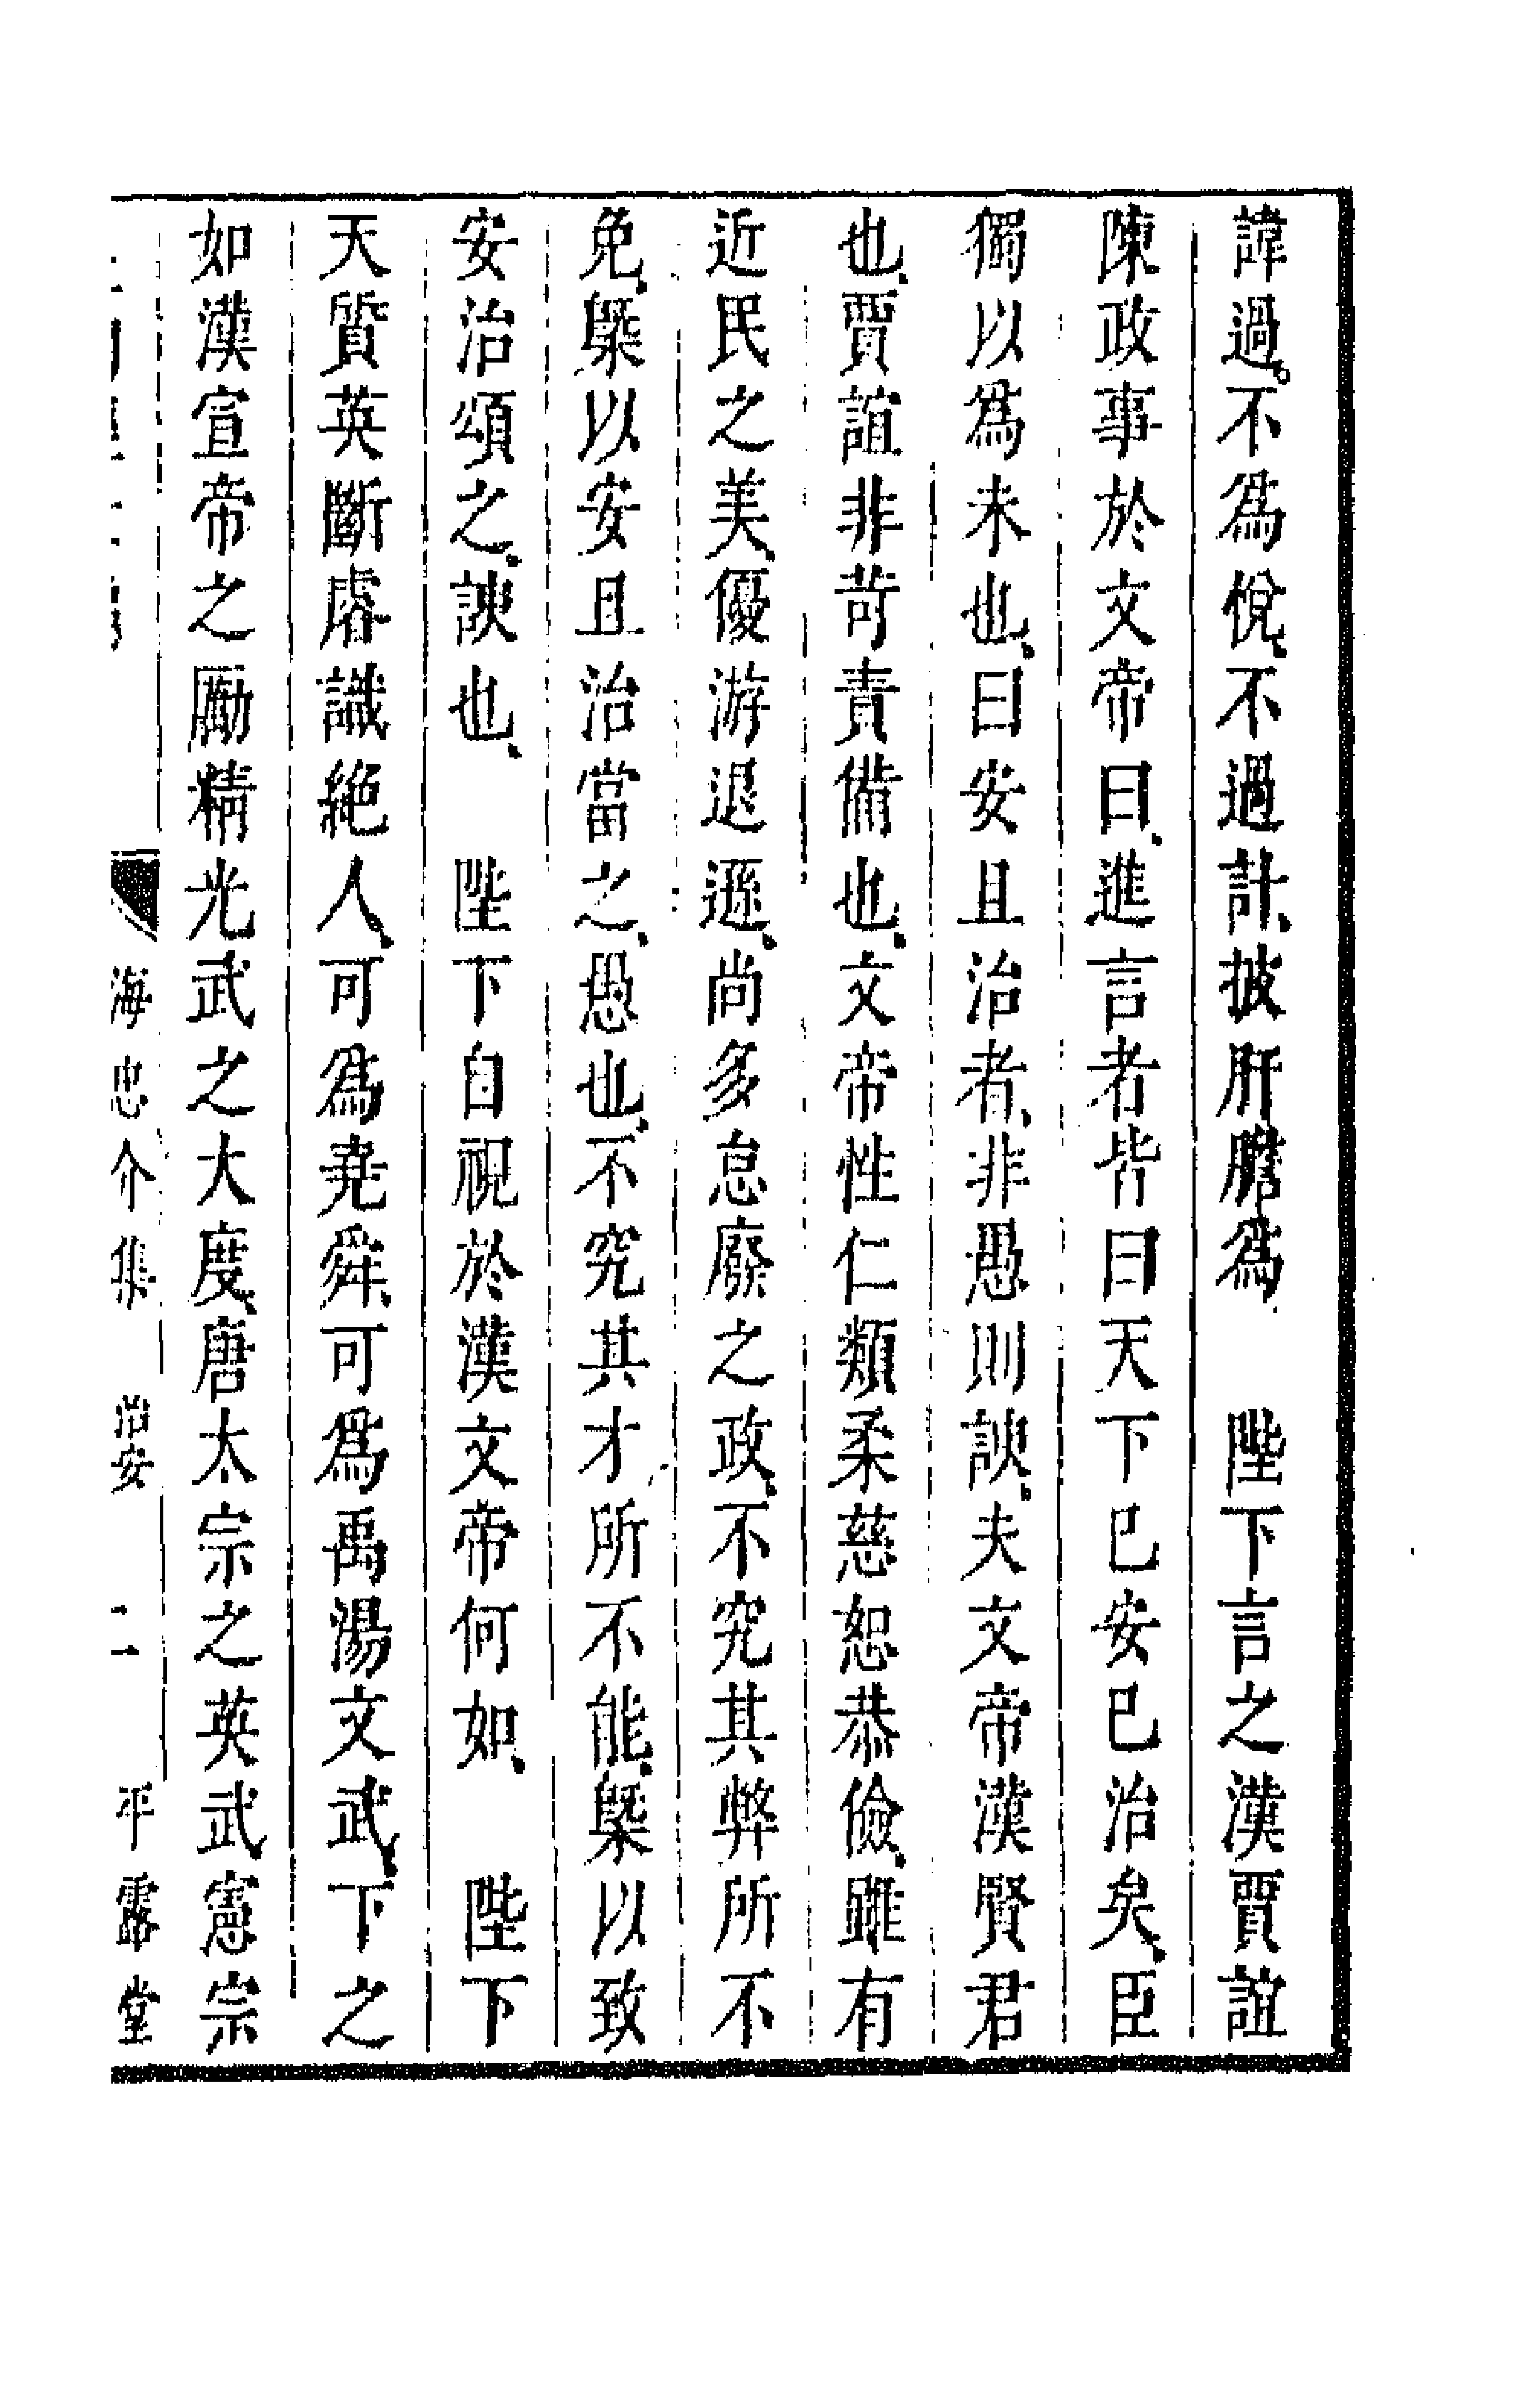 諱過。不爲悅、不過計、披肝膽爲　陛下言之漢賈誼
陳政事於文帝曰、進言者皆曰天下已安已治矣、臣
獨以爲未也、曰安且治者、非愚則諛、夫文帝漢賢君
也、賈誼非苛責備也、文帝性仁類柔慈恕恭儉、雖有
近民之美、優游退遜、尚多怠廢之政、不究其弊所不
免、槩以安且治當之、愚也、不究其才所不能、槩以致
安治頌之、諛也、　陛下自視於漢文帝何如、　陛下
天質英斷睿識絶人、可爲堯舜、可爲禹湯文武、下之
如漢宣帝之勵精光武之大度、唐太宗之英武憲宗
海忠介集　治安　二　平露堂